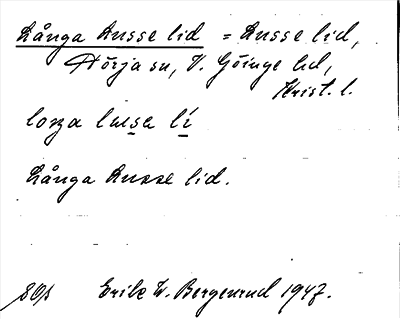 Långa Lusse lid = Lusse lid,
Nörja sn, V. Göinge hd,
Krist. l.
loŋa lusa lí
Långa Lusse lid.
Erik W. Bergenrud 1947.